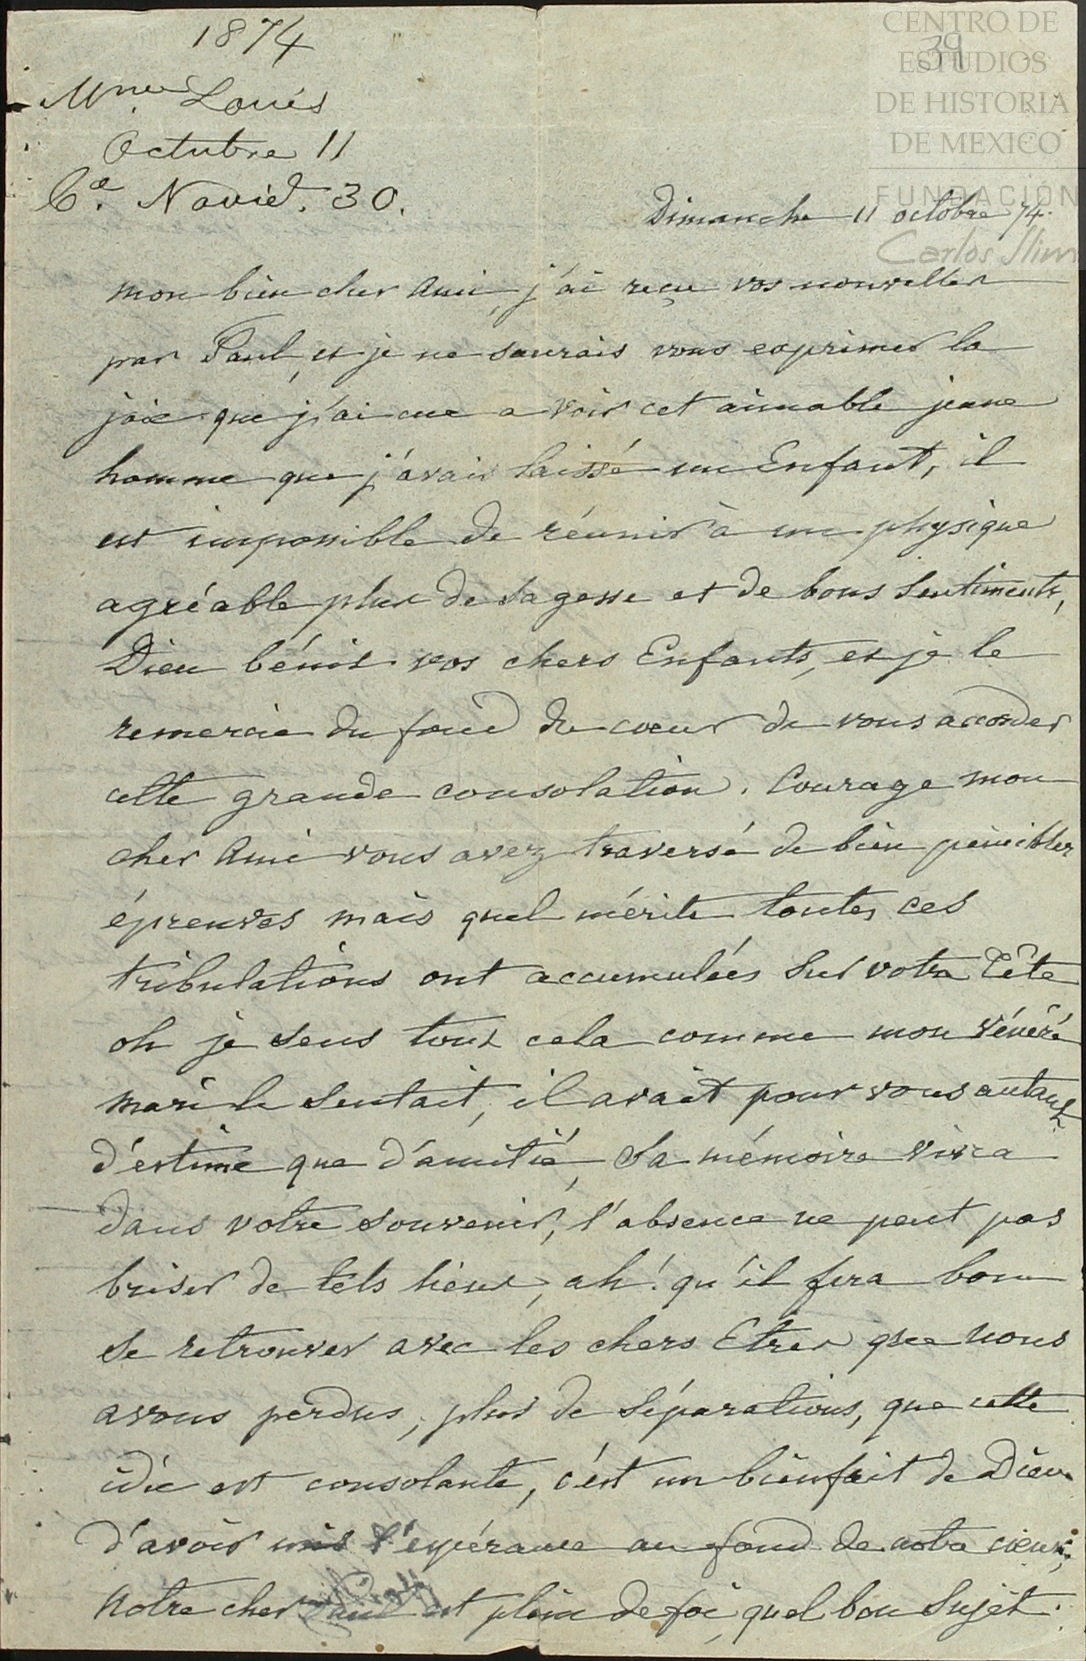 1874
39
CENTRO DE
ESTUDIOS
DE HISTORIA
DE MEXICO
FUNDACIÓN
Carlos Slim
Mme Louis
Octubre 11
Ca. Novie. 30.
Dimanche 11 octobre 74.
mon bien cher Ami, j'ai reçu vos nouvelles
par Paul, et je ne saurais vous exprimer la
joie que j'ai eue a voir cet aimable jeune
homme que j'avais laissé un Enfant, il
est impossible de réunir à un physique
agréable plus de sagesse et de bons sentiments,
Dieu bénit vos chers Enfants, et je le
remercie du fond du coeur de vous accorder
cette grande consolation. Courage mon
cher Ami vous avez traversé de bien pénibles
épreuves mais quel mérite toutes ces
tribulations ont accumulées sur votre tête
oh je sens tout cela comme mon vénéré
mari le sentait, il avait pour vous autant
d'estime que d'amitié, sa mémoire vivra
dans votre souvenir, l'absence ne peut pas
briser de tels liens, ah! qu'il fera bon
se retrouver avec les chers Etres que nous
avons perdus, plus de séparations, que cette
idée est consolante, c'est un bienfait de Dieu
d'avoir mis l'espérance au fond de notre coeur,
Notre cher Paul est plein de foi, quel bon sujet.